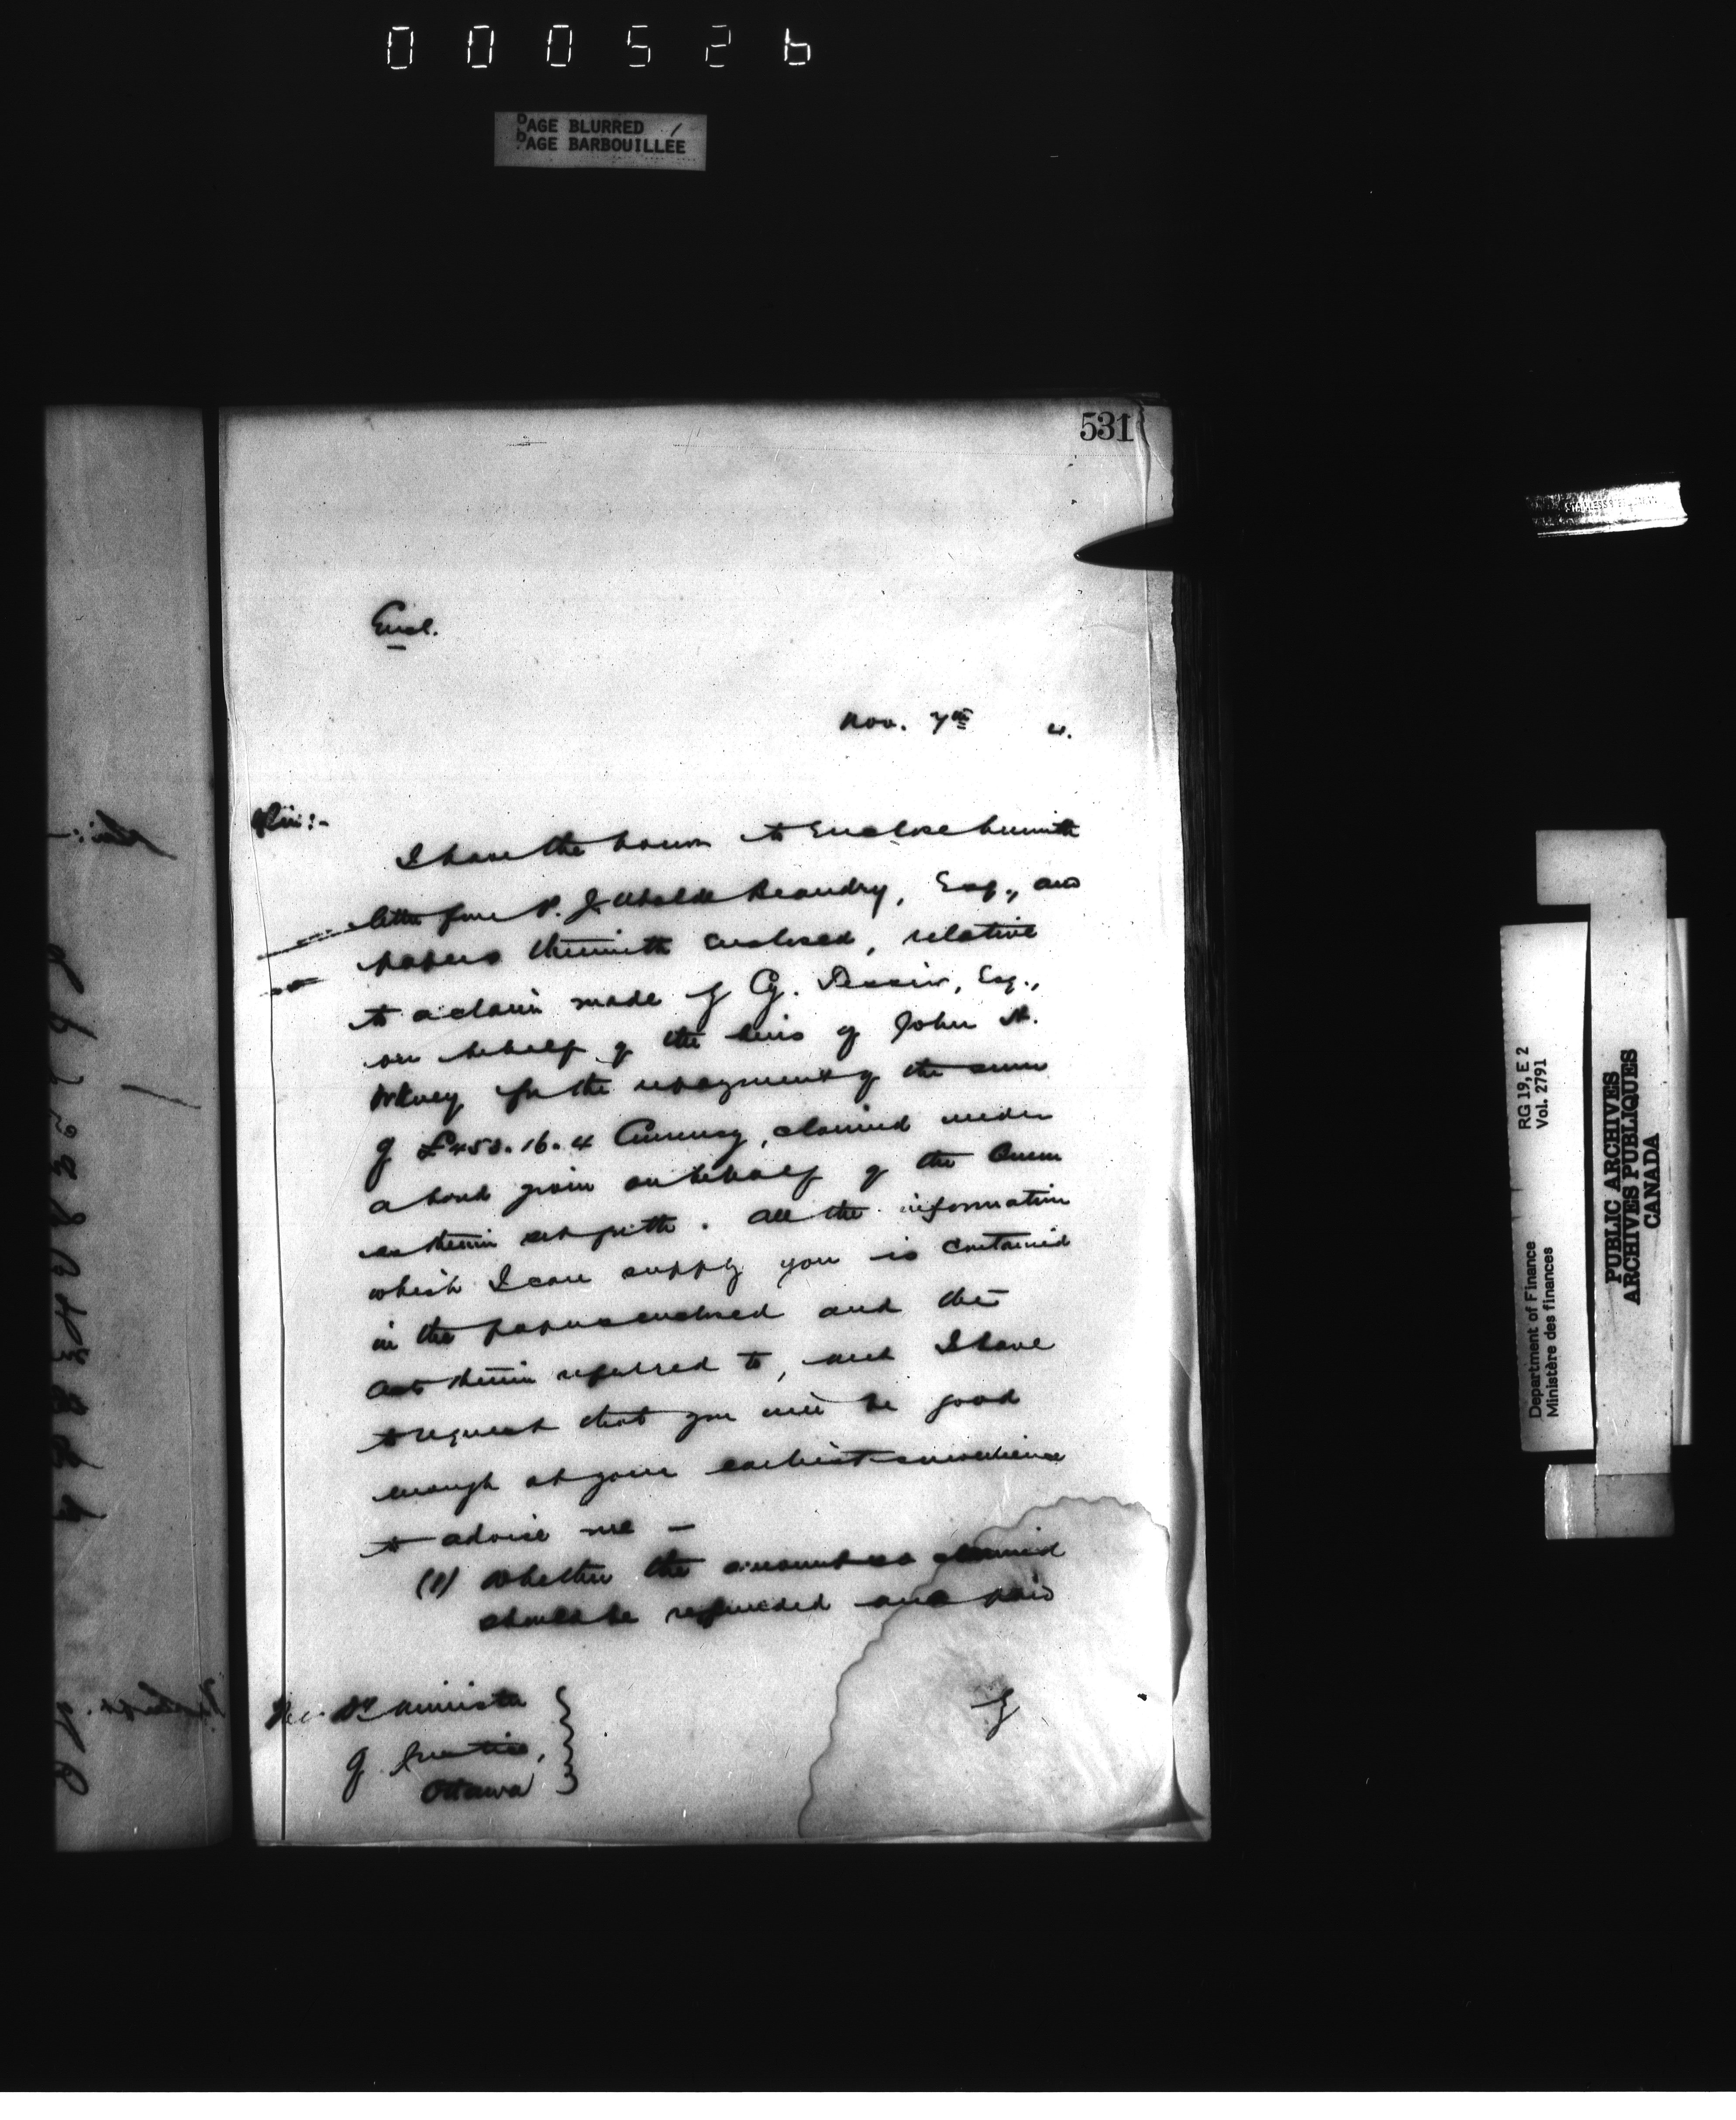 000526
PAGE BLURRED
PAGE BARBOUILLÉE
531
Encl.
Nov. 7th 4.
Sir:-
I have the honor to enclose herewith
letter from P. J. Ubalde Beaudry, Esq., and
papers therewith enclosed, relative
to a claim made by G. Esq.,
on behalf of the heirs of John
for the repayment of the sum
of 16. 4 Currency, claimed under
a bond given on behalf of the Queen
as therein set forth. All the information
which I can supply you is contained
in the papers enclosed and the
Acts therein referred to, and I have
to request that you will be good
enough at your earliest convenience
to advise me —
(1) Whether the amount so claimed
should be refunded and paid
The Dy Minister
of Justice,
Ottawa
by
RG 19, E 2
Vol. 2791
Department of Finance
Ministère des finances
PUBLIC ARCHIVES
ARCHIVES PUBLIQUES
CANADA